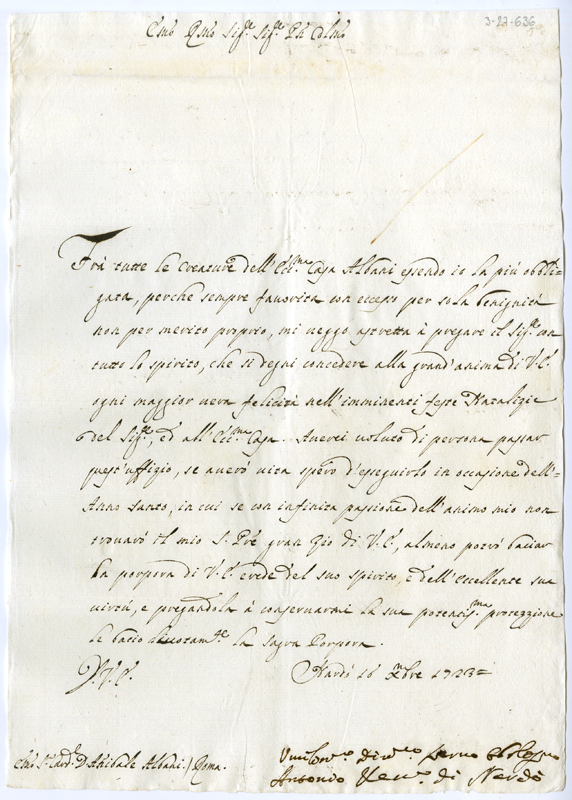 3-27-636
Em̃o Rm̃o Sig.re Sig.re Prõn Colmo
Frà tutte le Creature dell'Ecc.ma Casa Albani essendo io la più obbli=
gata, perche sempre favorita con eccesso per sola benignità
non per merito proprio, mi veggo astretta à pregare il Sig.re con
tutto lo spirito, che si degni concedere alla grand'anima di V.E.
ogni maggior vera felicità nell'imminenti feste Natalizie
del Sig.re, ed all'Ecc.ma Casa. Averei voluto di persona passar
quest'uffizio, se averò vita spero d'eseguirlo in occasione dell'=
Anno Santo, in cui se con infinita passione dell'animo mio non
trovarò il mio S. Prẽ gran Zio di V.E., almeno potrò baciar
la porpora di V.E. erede del suo spirito, e dell'eccellente sua
virtù, e pregandola à conservarmi la sua potentis.ma protezzione
le bacio divotam.te la sagra Porpora.
V.E.
Nardò 16 Xmbre 1723=
Sig.r Card.l D. Anibale Albani / Roma.
Umilis.mo Div.mo Servo Obblig.mo
Antonio Vesc.o di Nardò